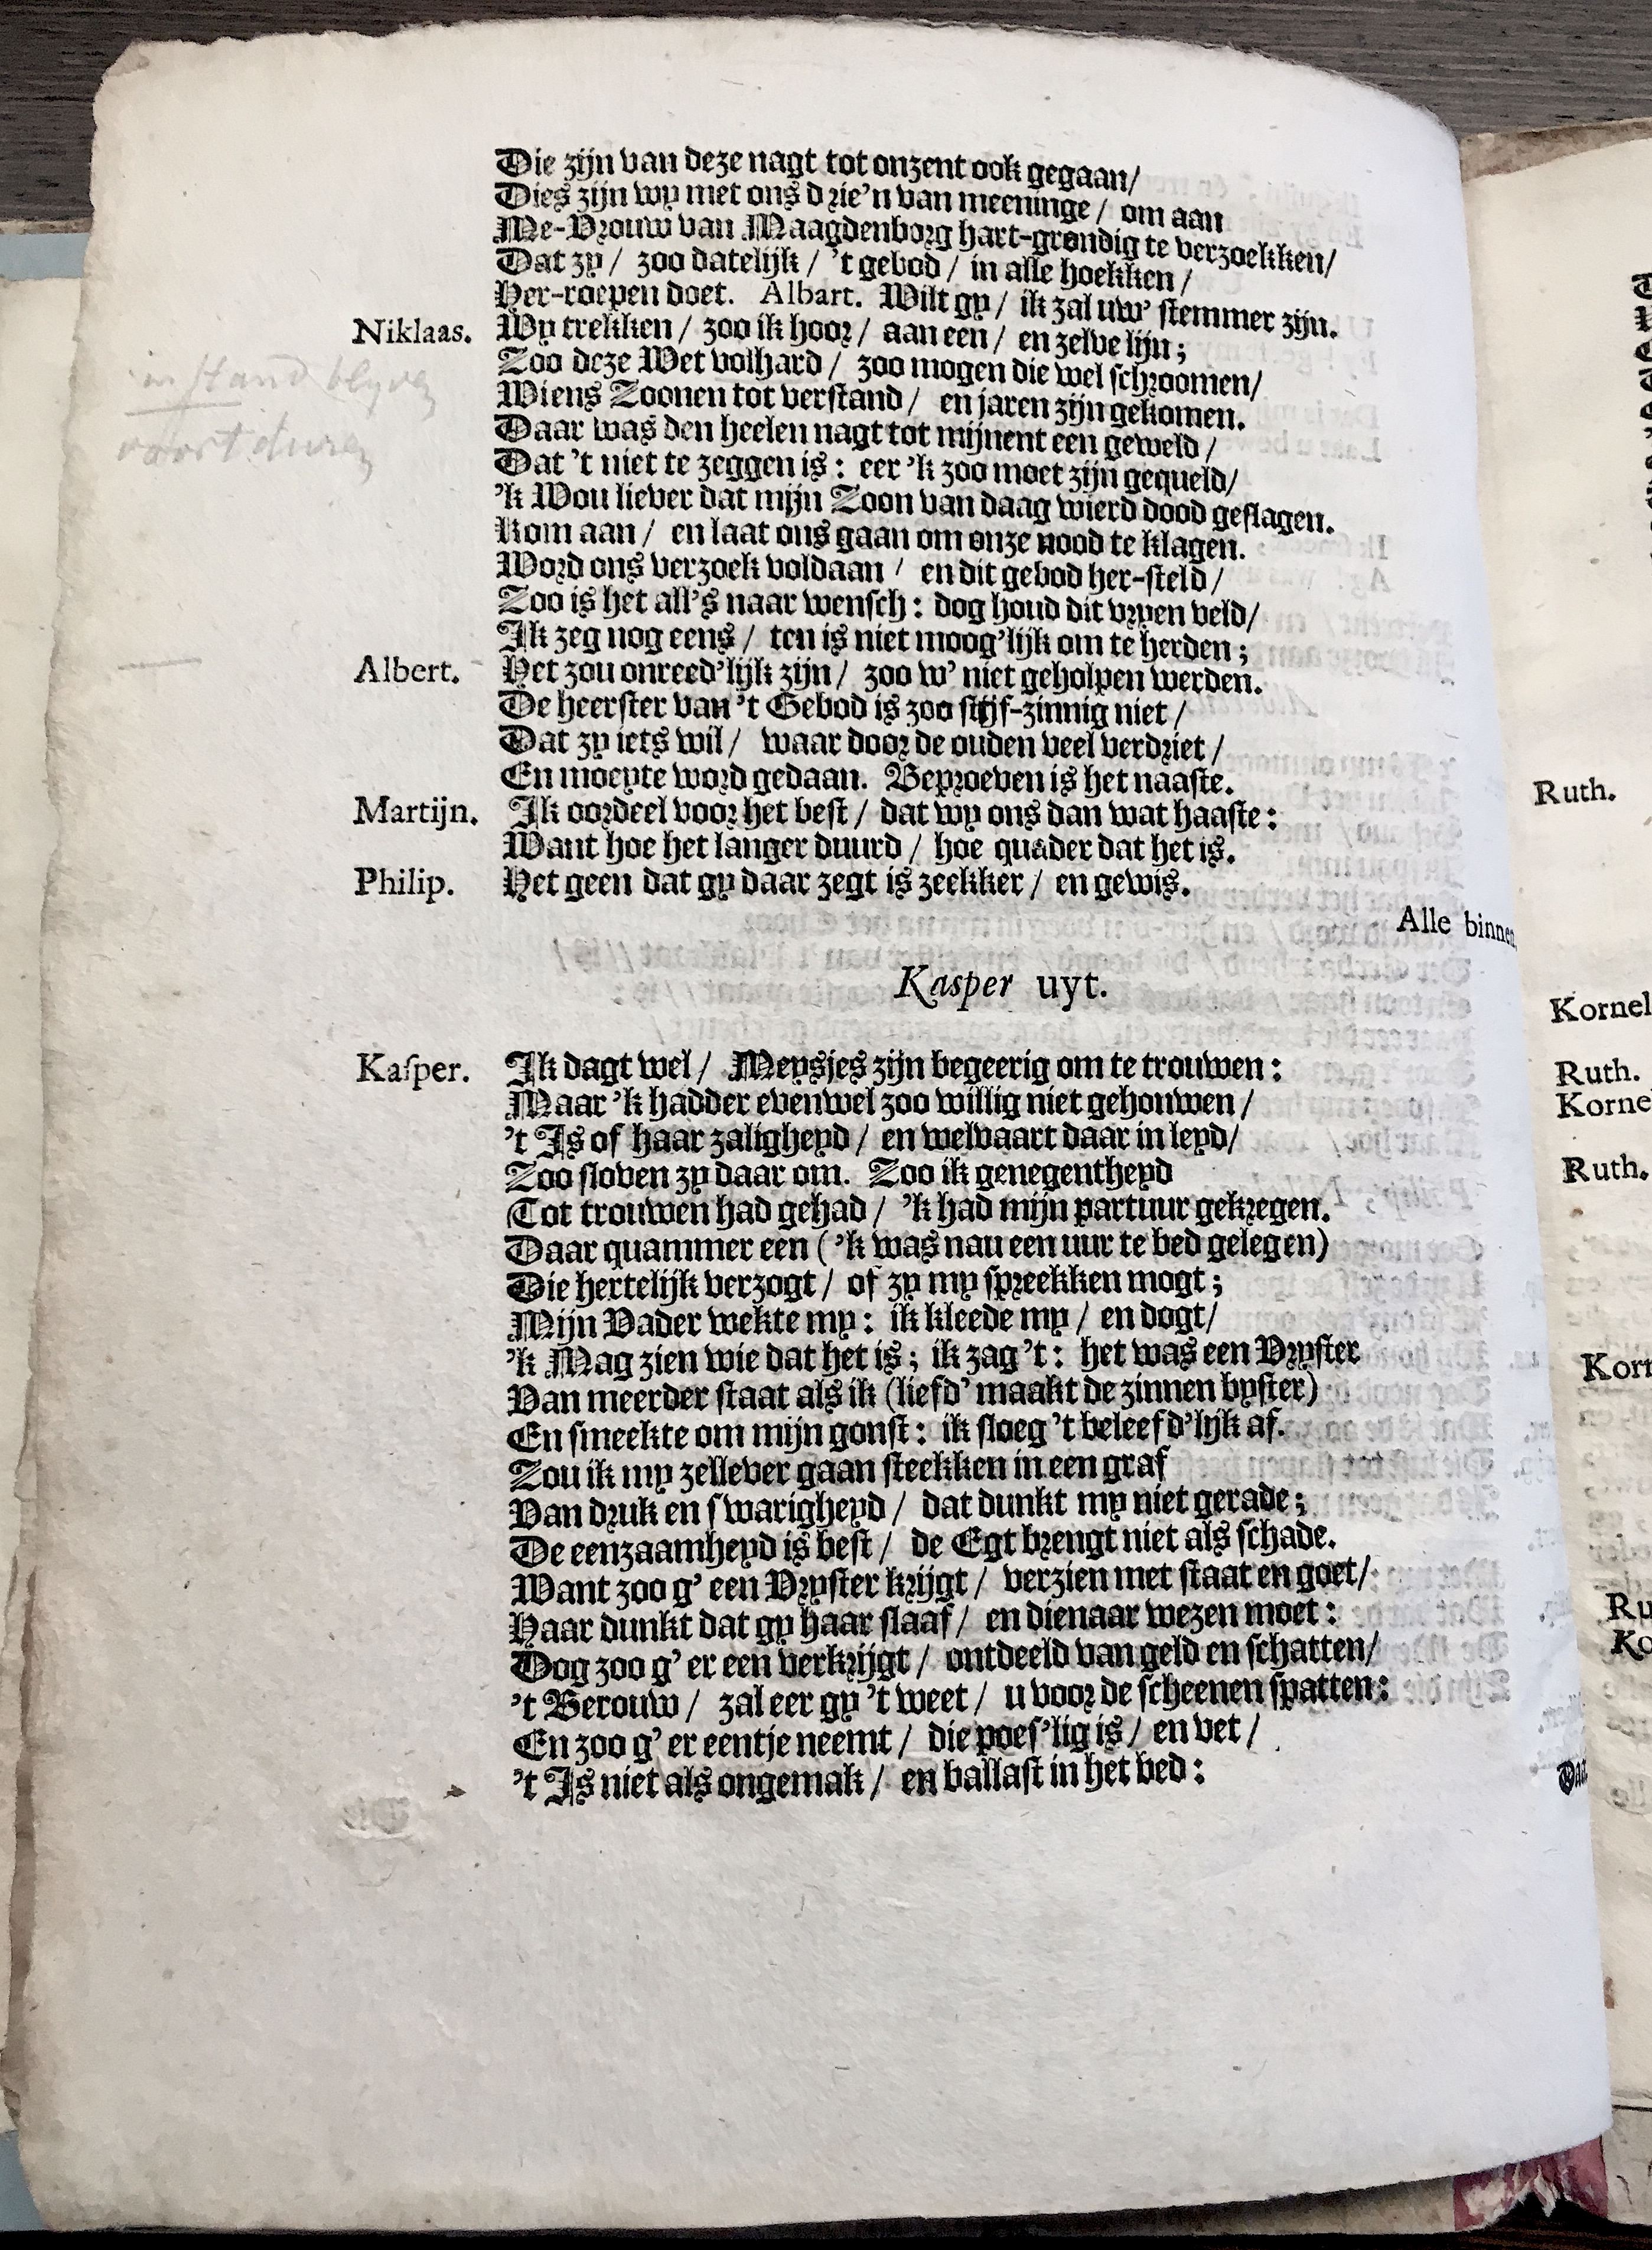 Die zijn van deze nagt tot onzent ook gegaan/
Dies zijn wy met ons drie'n van meeninge / om aan
Me-Vrouw van Maagdenborg hart-grondig te verzoekken/
Dat zy / zoo datelijk / 't gebod / in alle hoekken /
Her-roepen doet. Albart. Wilt gy / ik zal uw' stemmer zijn.
Niklaas. Wy trekken / zoo ik hoor / aan een / en zelve lijn ;
Zoo deze Wet volhard / zoo mogen die wel schroomen/
in stand blyven
Wiens Zoonen tot verstand / en jaren zijn gekomen.
Daar was den heelen nagt tot mijnent een geweld /
voortduren
Dat 't niet te zeggen is : eer 'k zoo moet zijn gequeld/
'k Wou liever dat mijn Zoon van daag wierd dood geslagen.
Kom aan / en laat ons gaan om onze nood te klagen.
Word ons verzoek voldaan / en dit gebod her-steld /
Zoo is het all's naar wensch : dog houd dit vryen veld/
Ik zeg nog eens / ten is niet moog'lijk om te herden ;
Albert. Het zou onreed'lijk zijn / zoo w' niet geholpen werden.
De heerster van 't Gebod is zoo stijf-zinnig niet /
Dat zy iets wil / waar door de ouden veel verdriet /
En moeyte word gedaan. Beproeven is het naaste.
Martijn. Ik oordeel voor het best / dat wy ons dan wat haaste :
Want hoe het langer duurd / hoe quader dat het is.
Philip. Het geen dat gy daar zegt is zeekker / en gewis.
Alle binnen
Kasper uyt.
Kasper. Ik dagt wel / Meysjes zijn begeerig om te trouwen :
Maar 'k hadder evenwel zoo willig niet gehouwen /
't Is of haar zaligheyd / en welvaart daar in leyd/
Zoo sloven zy daar om. Zoo ik genegentheyd
Tot trouwen had gehad / 'k had mijn partuur gekregen.
Daar quammer een ( 'k was nau een uur te bed gelegen)
Die hertelijk verzogt / of zy my spreekken mogt ;
Mijn Vader wekte my : ik kleede my / en dogt/
'k Mag zien wie dat het is ; ik zag 't : het was een Vryster
Van meerder staat als ik (liefd' maakt de zinnen byster)
En smeekte om mijn gonst : ik sloeg 't beleefd'lijk af.
Zou ik my zellever gaan steekken in een graf
Van druk en swarigheyd / dat dunkt my niet gerade ;
De eenzaamheyd is best / de Egt brengt niet als schade.
Want zoo g' een Vryster krijgt / verzien met staat en goet/
Haar dunkt dat gy haar slaaf / en dienaar wezen moet :
Dog zoo g' er een verkrijgt / ontdeeld van geld en schatten/
't Berouw / zal eer gy 't weet / u voor de scheenen spatten :
En zoo g' er eentje neemt / die poes'lig is / en vet /
't Is niet als ongemak / en ballast in het bed :
Ruth.
Ruth.
Ruth.